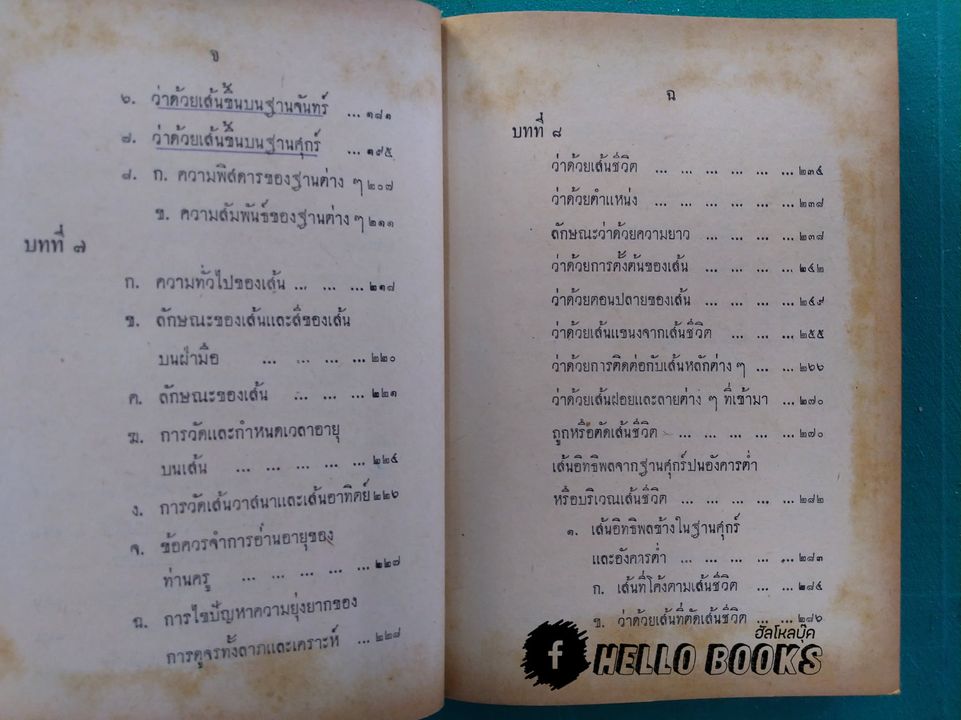 จ
๖. ว่าด้วยเส้นขึ้นบนฐานจันทร์ ... ๑๘๑
๗. ว่าด้วยเส้นขึ้นบนฐานศุกร์ ... ๑๙๕
๘. ก. ความพิสดารของฐานต่าง ๆ ๒๐๗
ข. ความสัมพันธ์ของฐานต่าง ๆ ๒๑๑
บทที่ ๗
ก. ความทั่วไปของเส้น ... ... ... ๒๑๘
ข. ลักษณะของเส้นและสีของเส้น
บนฝ่ามือ ... ... ... ... ๒๒๐
ค. ลักษณะของเส้น ... ... ... ๒๒๑
ฆ. การวัดและกำหนดเวลาอายุ
บนเส้น ... ... ... ... ... ๒๒๔
ง. การวัดเส้นวาสนาและเส้นอาทิตย์ ๒๒๖
จ. ข้อควรจำการอ่านอายุของ
ท่านครู ... ... ... ... ... ๒๒๗
ฉ. การไขปัญหาความยุ่งยากของ
การดูจรทั้งลาภและเคราะห์ ... ๒๒๘
ฉ
บทที่ ๘
ว่าด้วยเส้นชีวิต ... ... ... ... ... ๒๓๔
ว่าด้วยตำแหน่ง ... ... ... ... ... ๒๓๗
ลักษณะว่าด้วยความยาว ... ... ... ๒๓๗
ว่าด้วยการตั้งต้นของเส้น ... ... ... ๒๔๒
ว่าด้วยตอนปลายของเส้น ... ... ... ๒๔๙
ว่าด้วยเส้นแขนงจากเส้นชีวิต ... ... ... ๒๕๕
ว่าด้วยการติดต่อกับเส้นหลักต่าง ๆ ... ... ๒๖๖
ว่าด้วยเส้นฝอยและลายต่าง ๆ ที่เข้ามา ... ๒๗๐
ถูกหรือตัดเส้นชีวิต ... ... ... ... ... ๒๗๐
เส้นอิทธิพลจากฐานศุกร์ปนอังคารต่ำ
หรือบริเวณเส้นชีวิต ... ... ... ... ๒๘๒
๑. เส้นอิทธิพลข้างในฐานศุกร์
และอังคารต่ำ ... ... ... ... ... ๒๘๓
ก. เส้นที่โค้งตามเส้นชีวิต ... ... ๒๘๔
ข. ว่าด้วยเส้นที่ตัดเส้นชีวิต ... ... ๒๘๖
ฮัลโหลบุ๊ค
f HELLO BOOKS